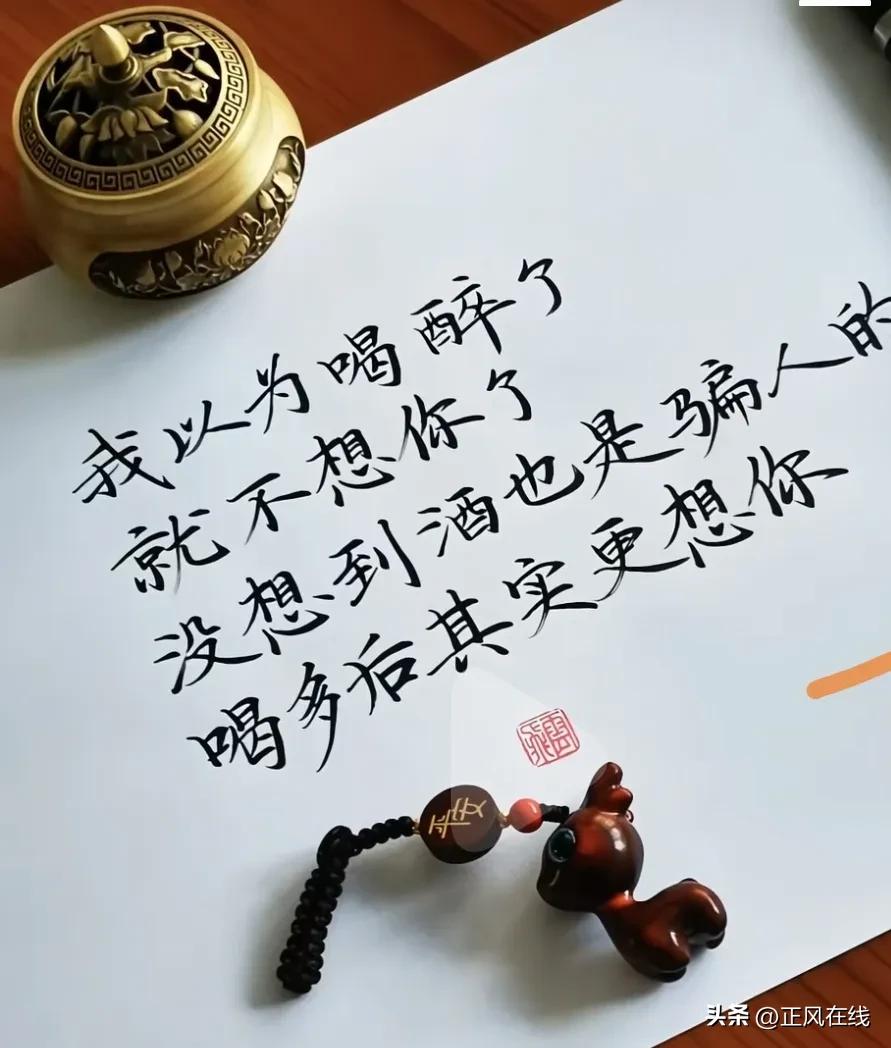 我以为喝醉了
就不想你了
没想到酒也是骗人的
喝多后其实更想你
平安
头条 @正风在线